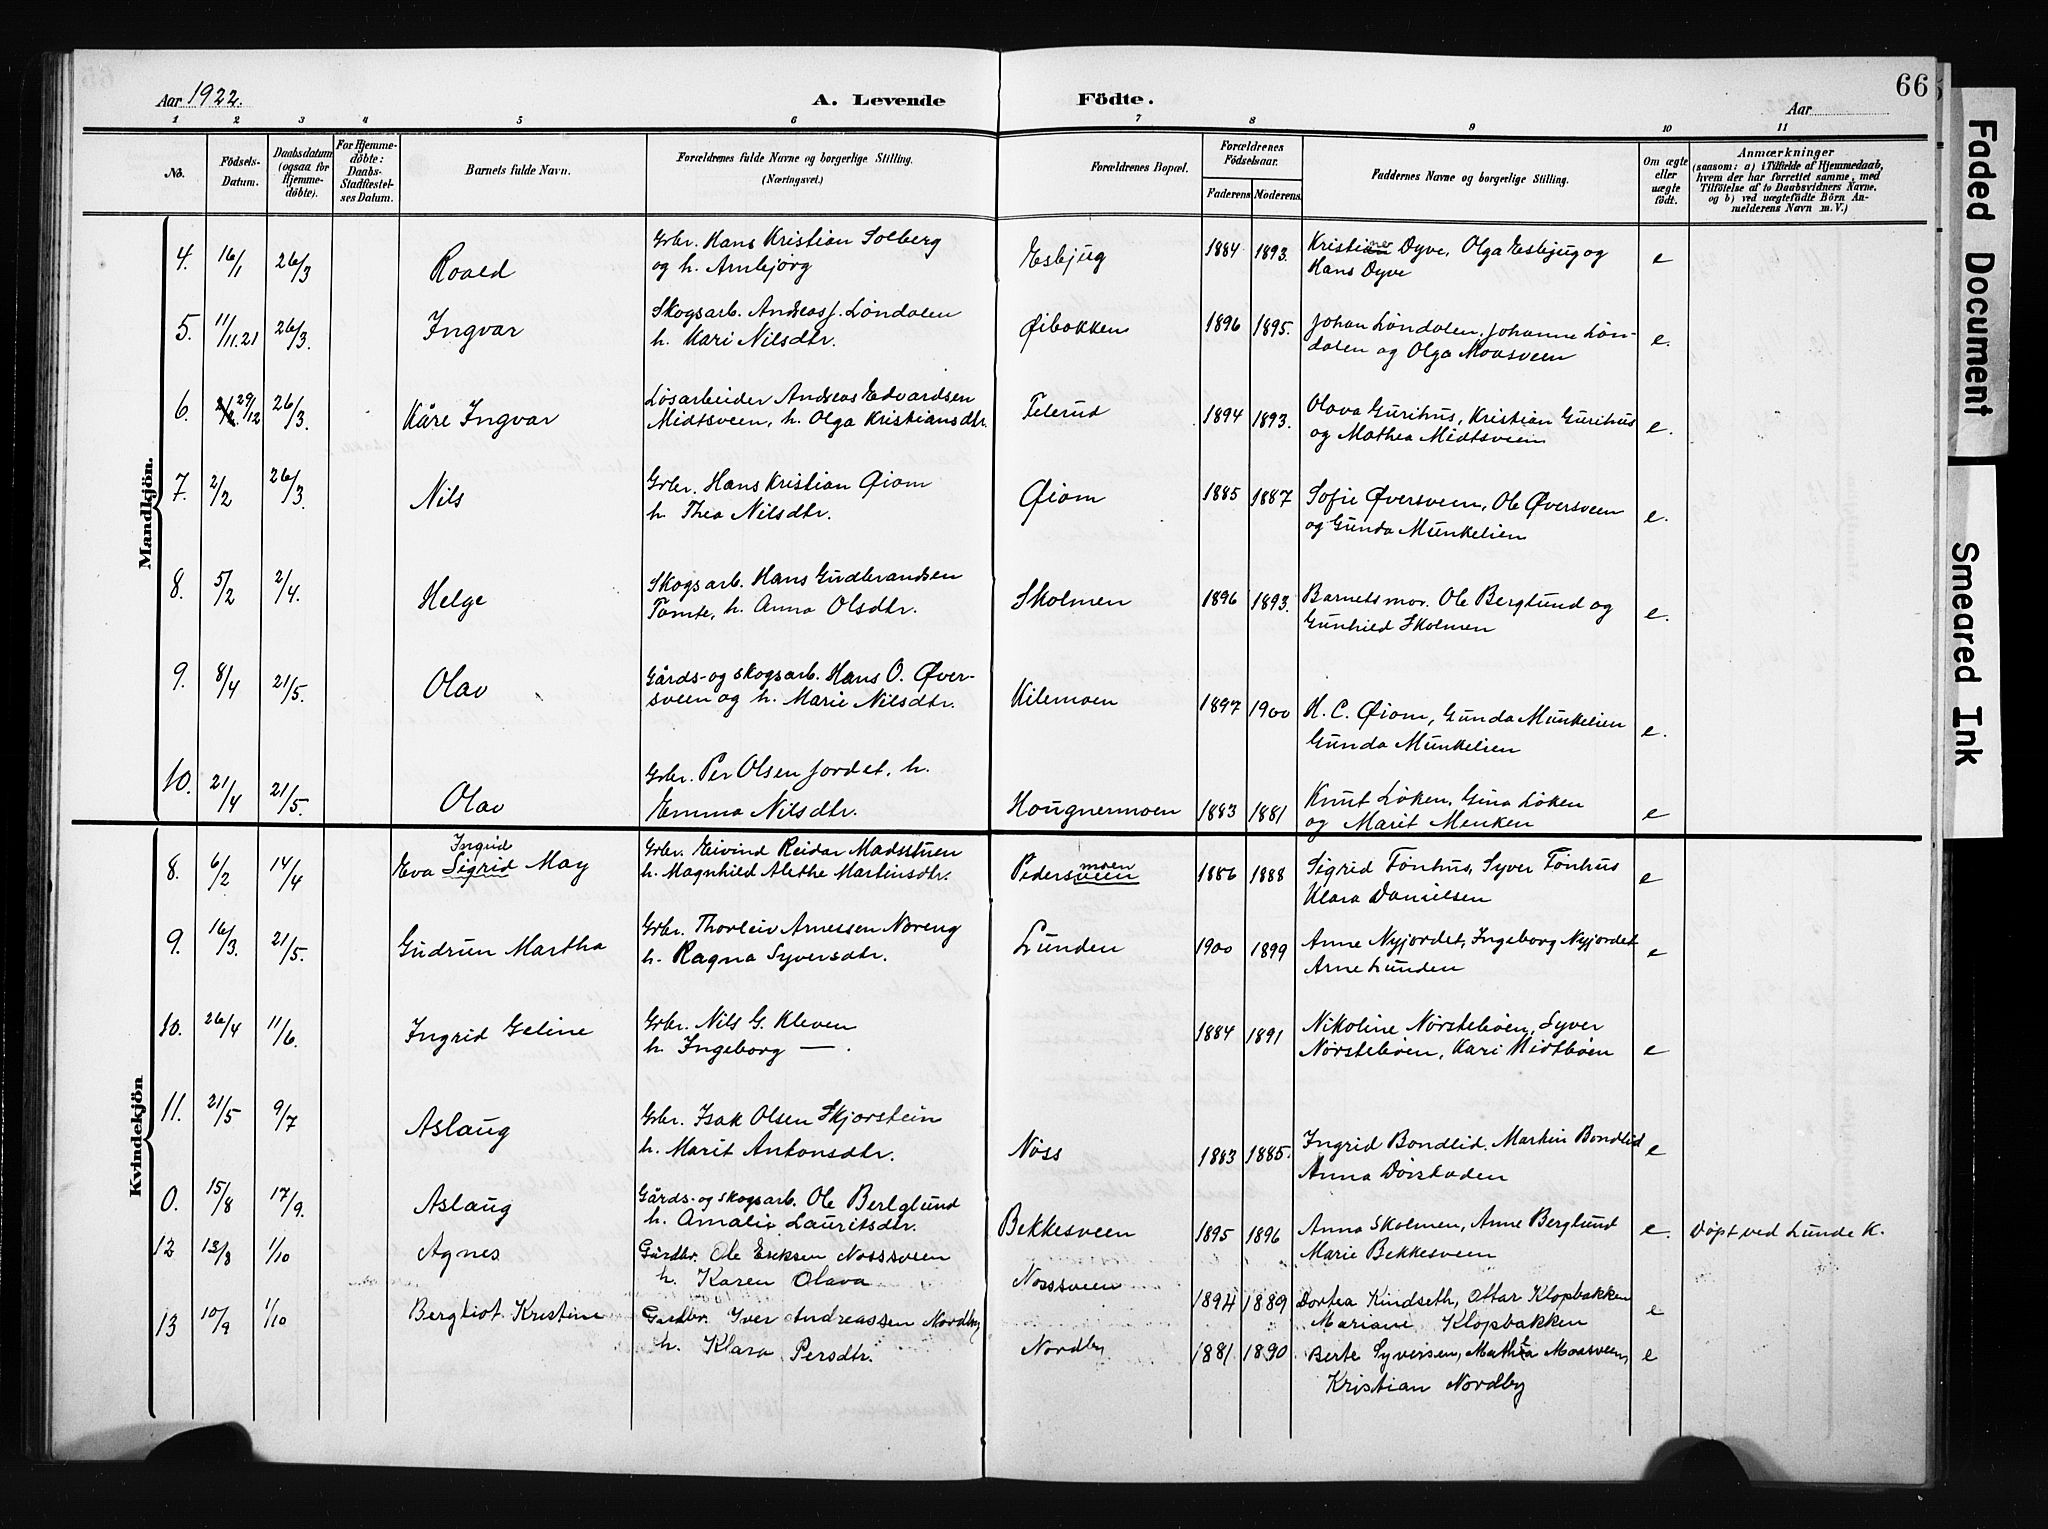 Aar 1922.
A. Levende Födte.
Aar
66
1 2 3 4 5 6 7 8 9 10 11
No.
Födsels-Datum.
Daabsdatum (ogsaa for Hjemme-döbte).
For Hjemme-döbte: Daabs-Stadfæstel-ses Datum.
Barnets fulde Navn.
Forældrenes fulde Navne og borgerlige Stilling. (Næringsvei.)
Forældrenes Bopæl.
Forældrenes Födselsaar.
Faderens Moderens.
Faddernes Navne og borgerlige Stilling.
Om ægte eller uægte födt.
Anmærkninger
(saasom: a) i Tilfælde af Hjemmedaab, hvem der har forrettet samme, med Tilföielse af to Daabsvidners Navne. og b) ved uægtefödte Börn An-melderens Navn m. V.)
Mandkjön.
4. 16/1 26/3 Roald Grbr. Hans Kristian Solberg Esbjug 1884 1893. Kristianer Dyve, Olga Esbjug og e
og h. Arnbjørg Hans Dyve
5. 11/11.21 26/3. Ingvar Skogsarb. Andreas J. Løndalen Øibakken 1896 1895. Johan Løndalen, Johanne Løn- e.
h. Kari Nilsdtr. dalen og Olga Moasveen
6. 29/12 26/3. Kåre Ingvar Løsarbeider Andreas Edvardsen Felerud 1894 1893. Olava Gurihus, Kristian Gurihus e.
Midtsveen, h. Olga Kristiansdtr. og Mathea Midtsveen
7. 2/2 26/3. Nils Grbr. Hans Kristian Øiom Øiom 1885 1887 Sofie Øversveen, Ole Øversveen e.
h. Thea Nilsdtr. og Gunda Munkelien
8. 5/2 2/4. Helge Skogsarb. Hans Gudbrandsen Skolmen 1896 1893. Barnets mor. Ole Berglund og e.
Tomte, h. Anna Olsdtr. Gunhild Skolmen
9. 8/4 21/5. Olav Gårds- og skogsarb. Hans O. Øver- Kilemoen 1897 1900 H. C. Øiom, Gunda Munkelien e.
sveen og h. Marie Nilsdtr. Gunda Munkelien
10. 21/4 21/5. Olav Grbr. Per Olsen Jordet, h. Hougnermoen 1883 1881 Knut Løken, Gina Løken e
Emma Nilsdtr. og Marit Menken
Kvindekjön
8. 6/2 14/4 Eva Sigrid Ingrid May Grbr. Eivind Reidar Madsstuen Pedersveen moen 1886 1888 Sigrid Tønhus, Syver Tønhus e
h. Magnhild Alethe Martinsdtr. Klara Danielsen
9. 16/3. 21/5. Gudrun Martha Grbr. Thorleiv Arnesen Noreng Lunden 1900 1899 Anne Nyjordet, Ingeborg Nyjordet e
h. Ragna Syversdtr. Arne Lunden
10. 26/4 11/6. Ingrid Geline Grbr. Nils G. Kleven 1884 1891 Nikoline Nørstebøen, Syver
h. Ingeborg — . Nørstebøen, Kari Midtbøen e
11. 21/5 9/7 Aslaug Grbr. Isak Olsen Skjarstein Nøss 1883 1885. Ingrid Bondlid. Martin Bondlid e
h. Marit Antonsdtr. Anna
0. 15/8 17/9. Aslaug Gårds- og skogsarb. Ole Berlglund Bekkesveen 1895 1896 Anna Skolmen, Anne Berglund e. Døpt ved Lunde K.
h. Amalie Lauritsdtr. Marie Bekkesveen
12 13/8 1/10 Agnes Gårdbr. Ole Eriksen Nossveen Nossveen 1894 1889 Dortea Kindseth, Ottar Klopbakken e
h. Karen Olava Mariane Klopbakken
13 10/9 1/10 Bergliot Kristine Gardbr. Iver Andreassen Nordby Nordby 1881 1890 Berte Syversen, Mathea Moasveen, e
h. Klara Persdtr. Kristian Nordby
Faded Document
Smeared Ink